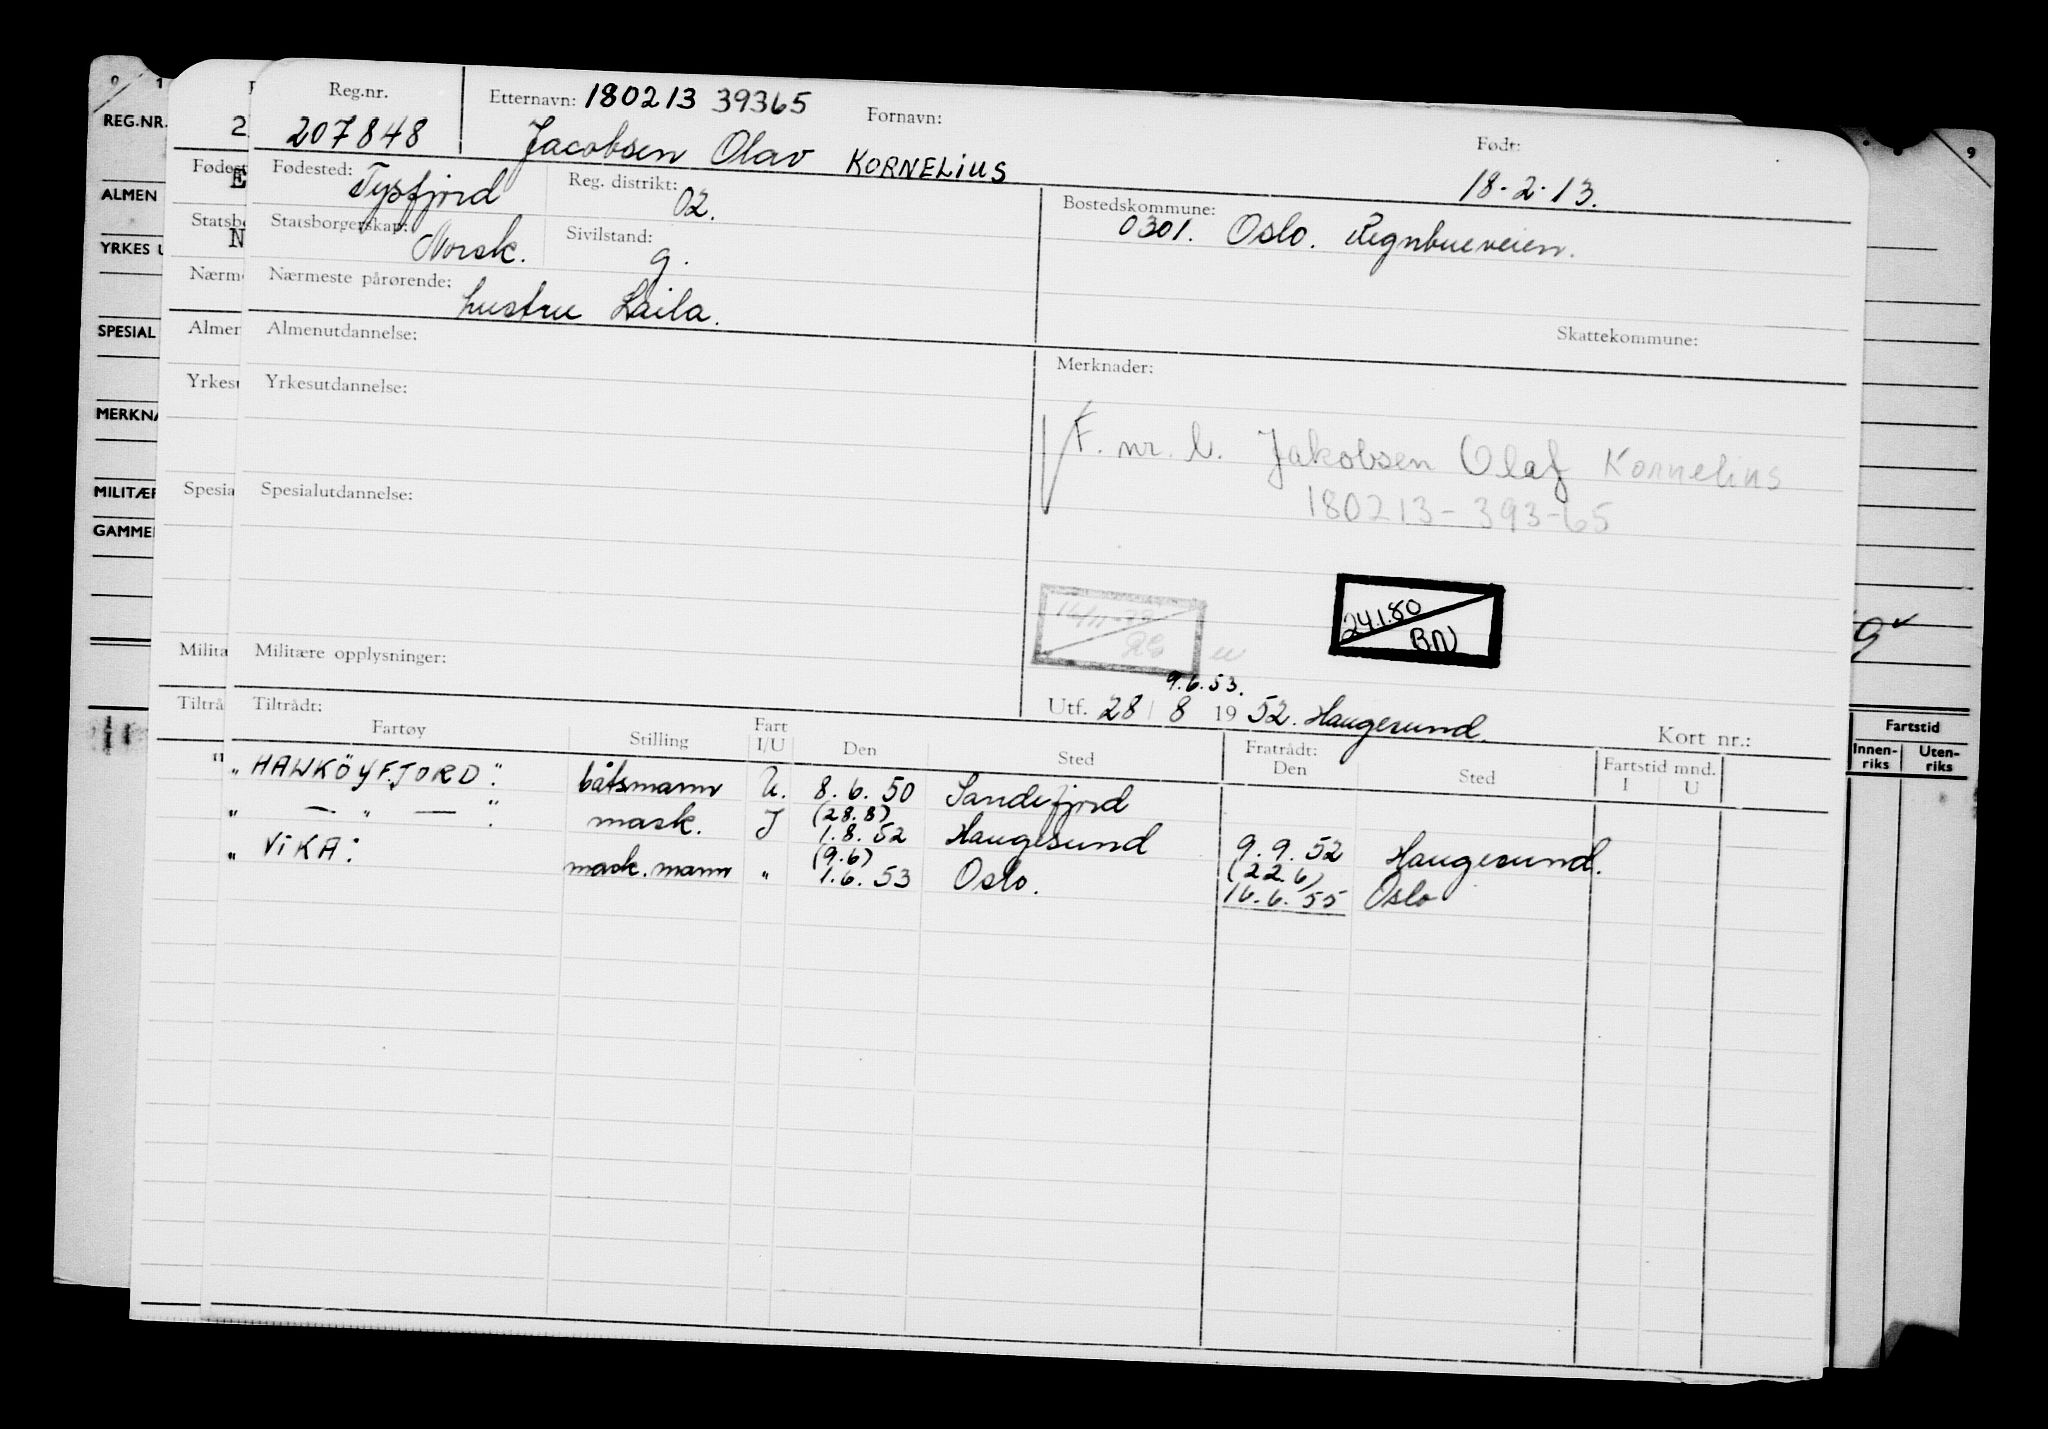 Reg.nr. Etternavn: 180213 39365 Fornavn: Født:
207848 Jacobsen Olav KORNELIUS 18-2-13.
Fødested: Tysfjord Reg. distrikt: 02. Bostedskommune: 0301. Oslo. Regnbueveien.
Statsborgerskap: Norsk. Sivilstand: g.
Nærmeste pårørende: hustru Laila.
Almenutdannelse: Skattekommune:
Yrkesutdannelse: Merknader:
F. nr. Jakobsen Olaf Kornelius
180213-393-65
Spesialutdannelse:
24.1.80
BN
Militære opplysninger:
9.6.53.
Tiltrådt: Utf. 28/8 1952. Haugesund. Kort nr.:
Fartøy Stilling Fart I/U Den Sted Fratrådt: Den Sted Fartstid mnd. I U
"HAWKÖYFJORD". båtsmann U. 8.6.50 Sandefjord
" — " — ". mask. I (28.8) 1.8.52 Haugesund 9.9.52 Haugesund.
"VIKA: mask.mann " (9.6) 1.6.53 Oslo. (22.6) 16.6.55 Oslo
REG.NR.
ALMEN
YRKES U
SPESIAL
MERKNA
MILITÆR
GAMMEL
2
Fødest
E
Statsbo
N
Nærme
Almen
Yrkesu
Spesia
Milita
Tiltrå
9
g
Fartstid
Innen-riks Uten-riks